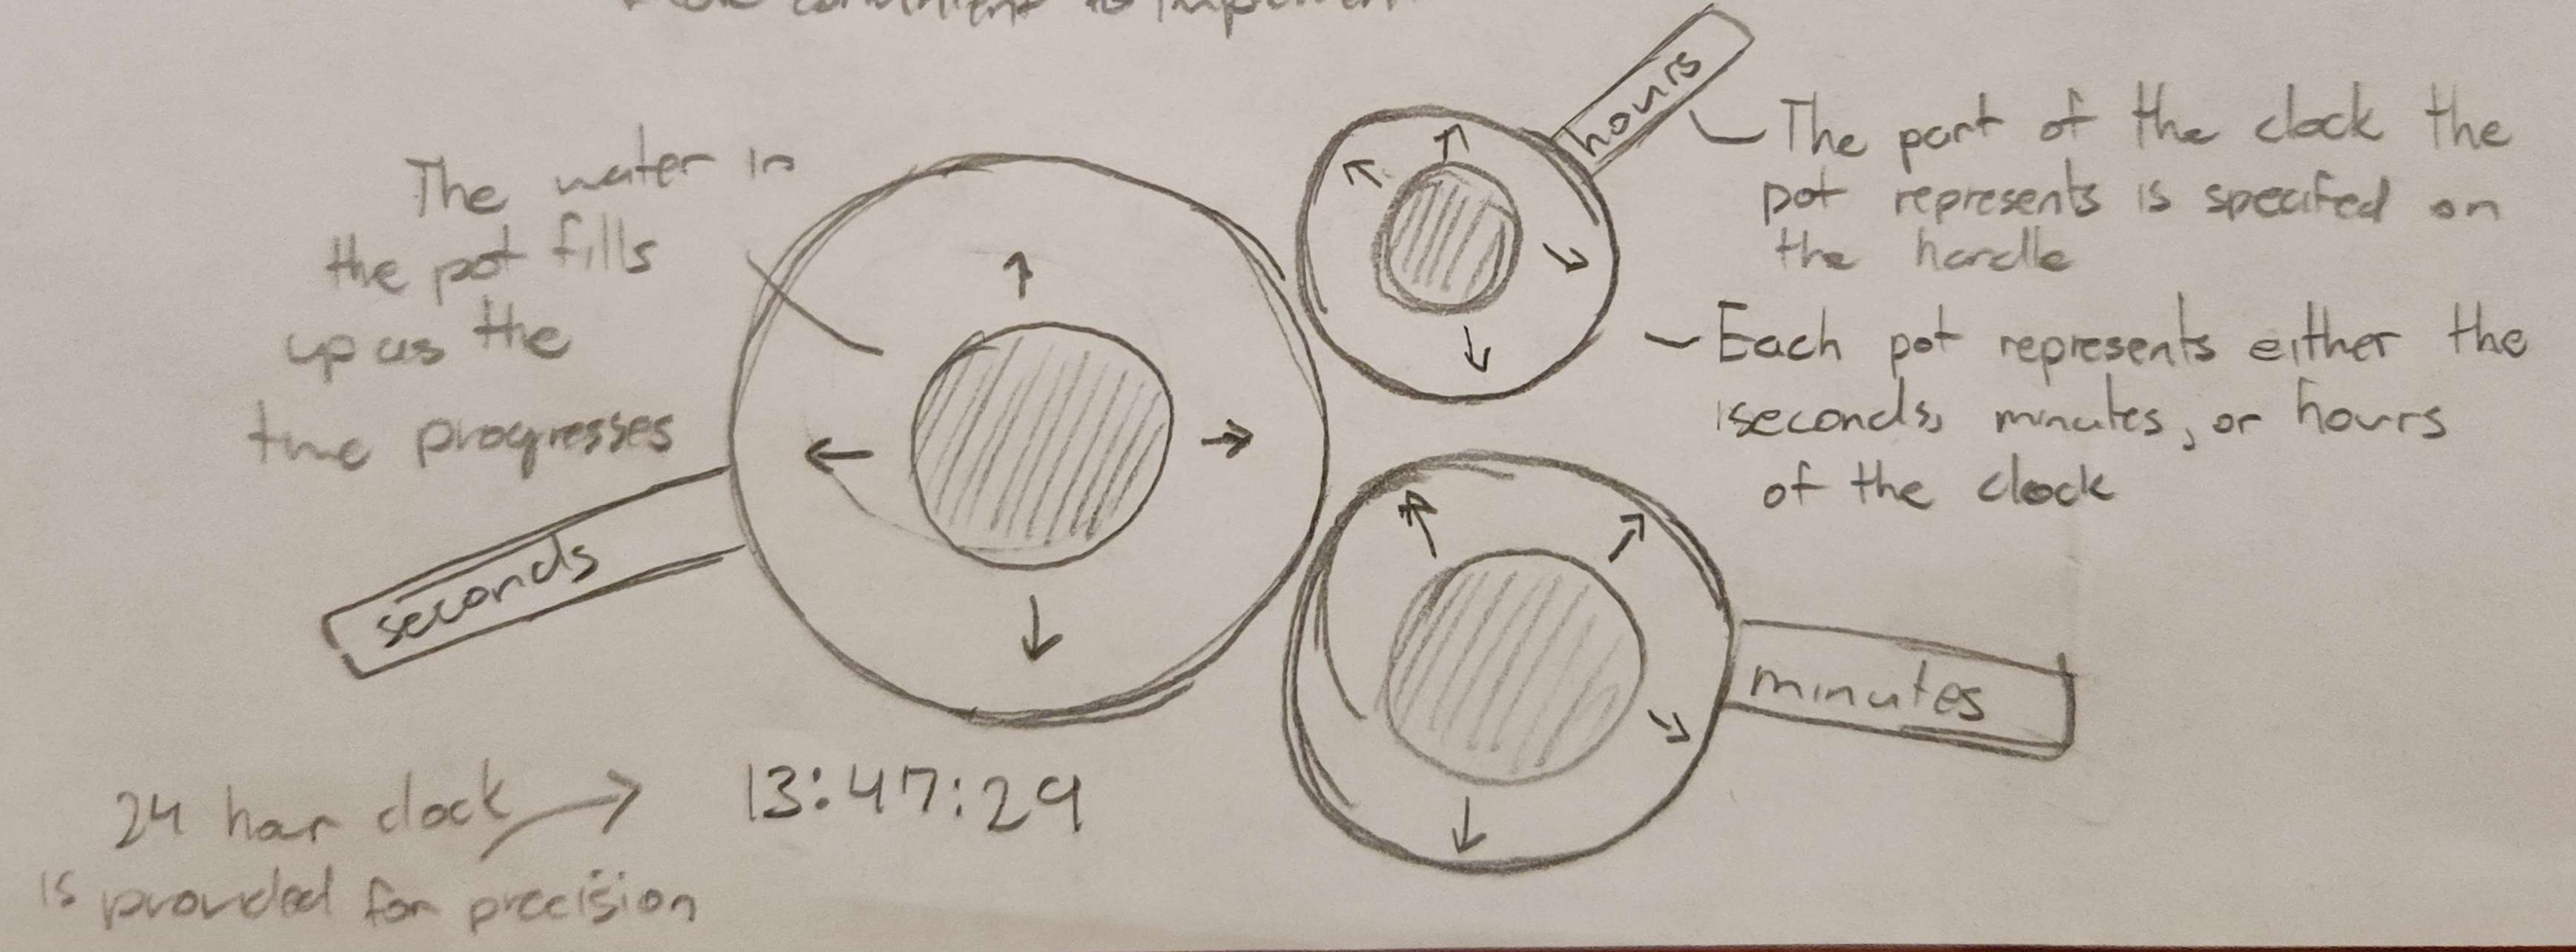 to implement
The water in
the pot fills
up as the
time progresses
seconds
hours
The part of the clock the
pot represents is specified on
the handle
Each pot represents either the
seconds, minutes, or hours
of the clock
minutes
24 hour clock
is provided for precision
13:47:29